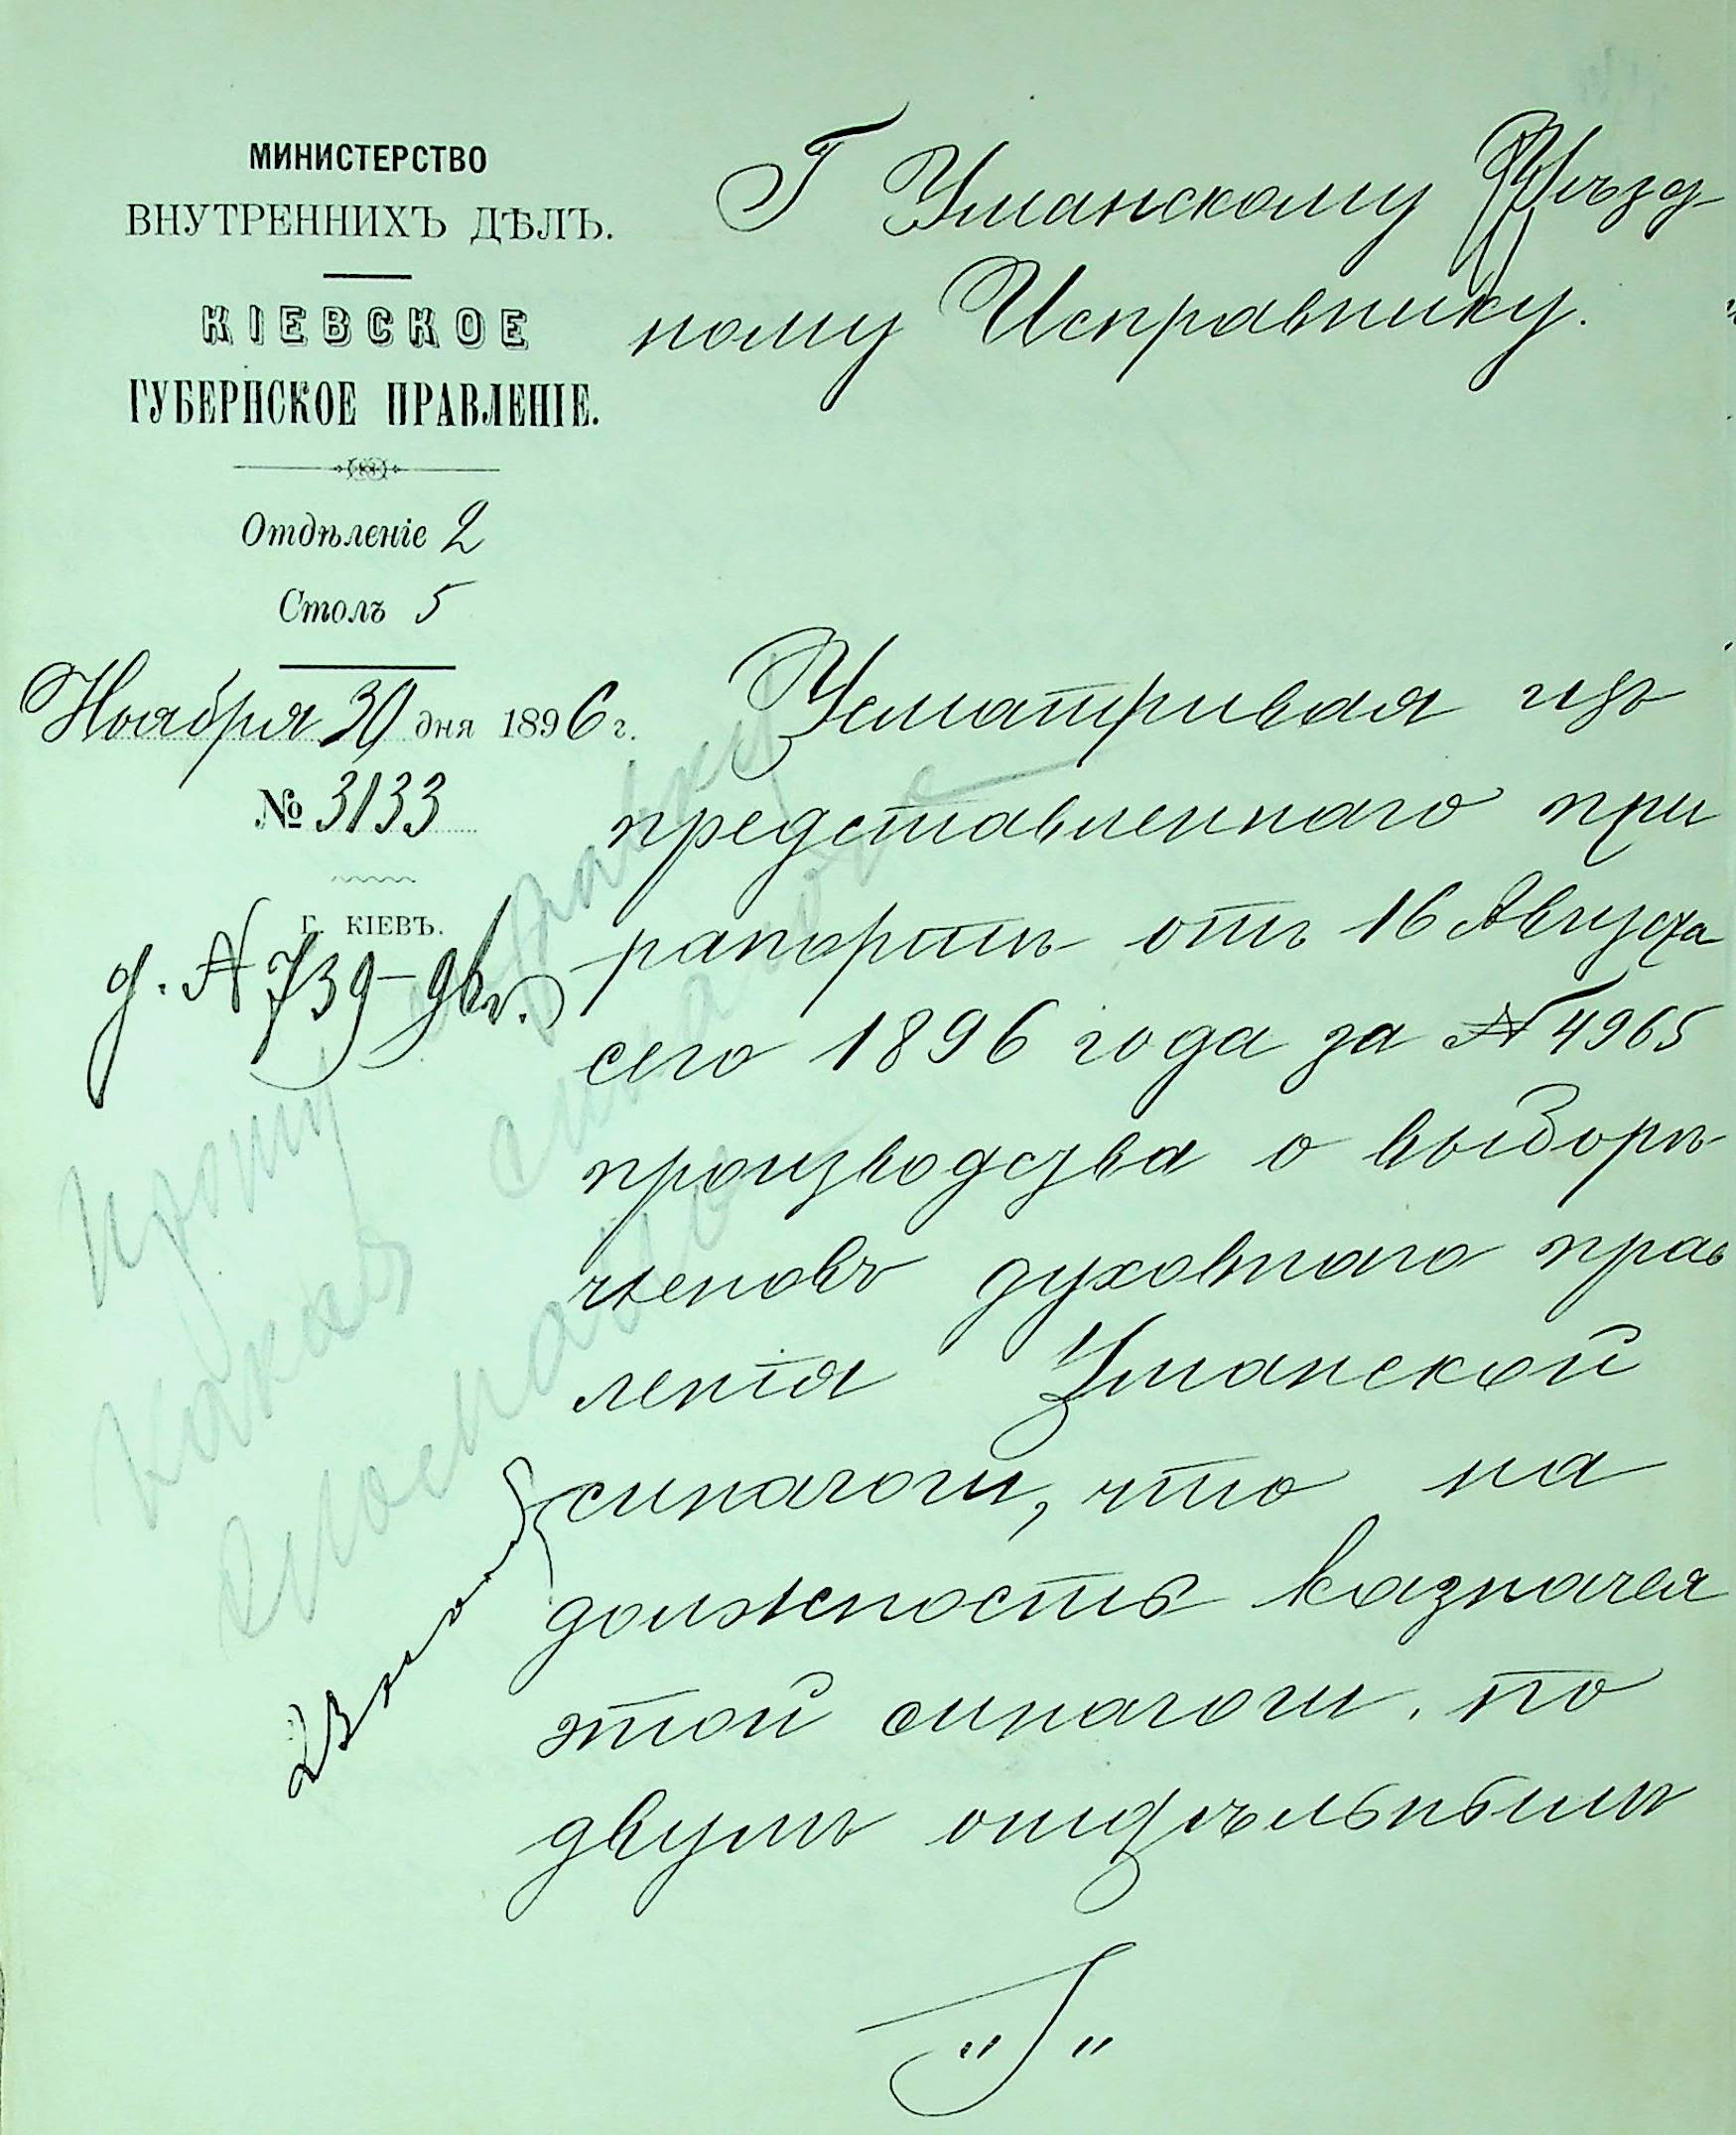 МИНИСТЕРСТВО
ВНУТРЕННИХЪ ДѢЛЪ.
КІЕВСКОЕ
ГУБЕРНСКОЕ ПРАВЛЕНІЕ.
Отдѣленіе 2
Столъ 5
Ноября 30 дня 1896 г.
№ 3133
Г. КІЕВЪ.
д. №
Г Уманскому Уѣзд-
ному Исправнику.
Усматривая изъ
представленнаго при
рапортѣ отъ 16 Августа
сего 1896 года за № 4965
производства о выборѣ
членовъ духовнаго прав
ленія Уманской
синагоги, что на
должность казначея
этой синагоги. по
двумъ отдѣльнымъ
Прошу справку
какая синагога